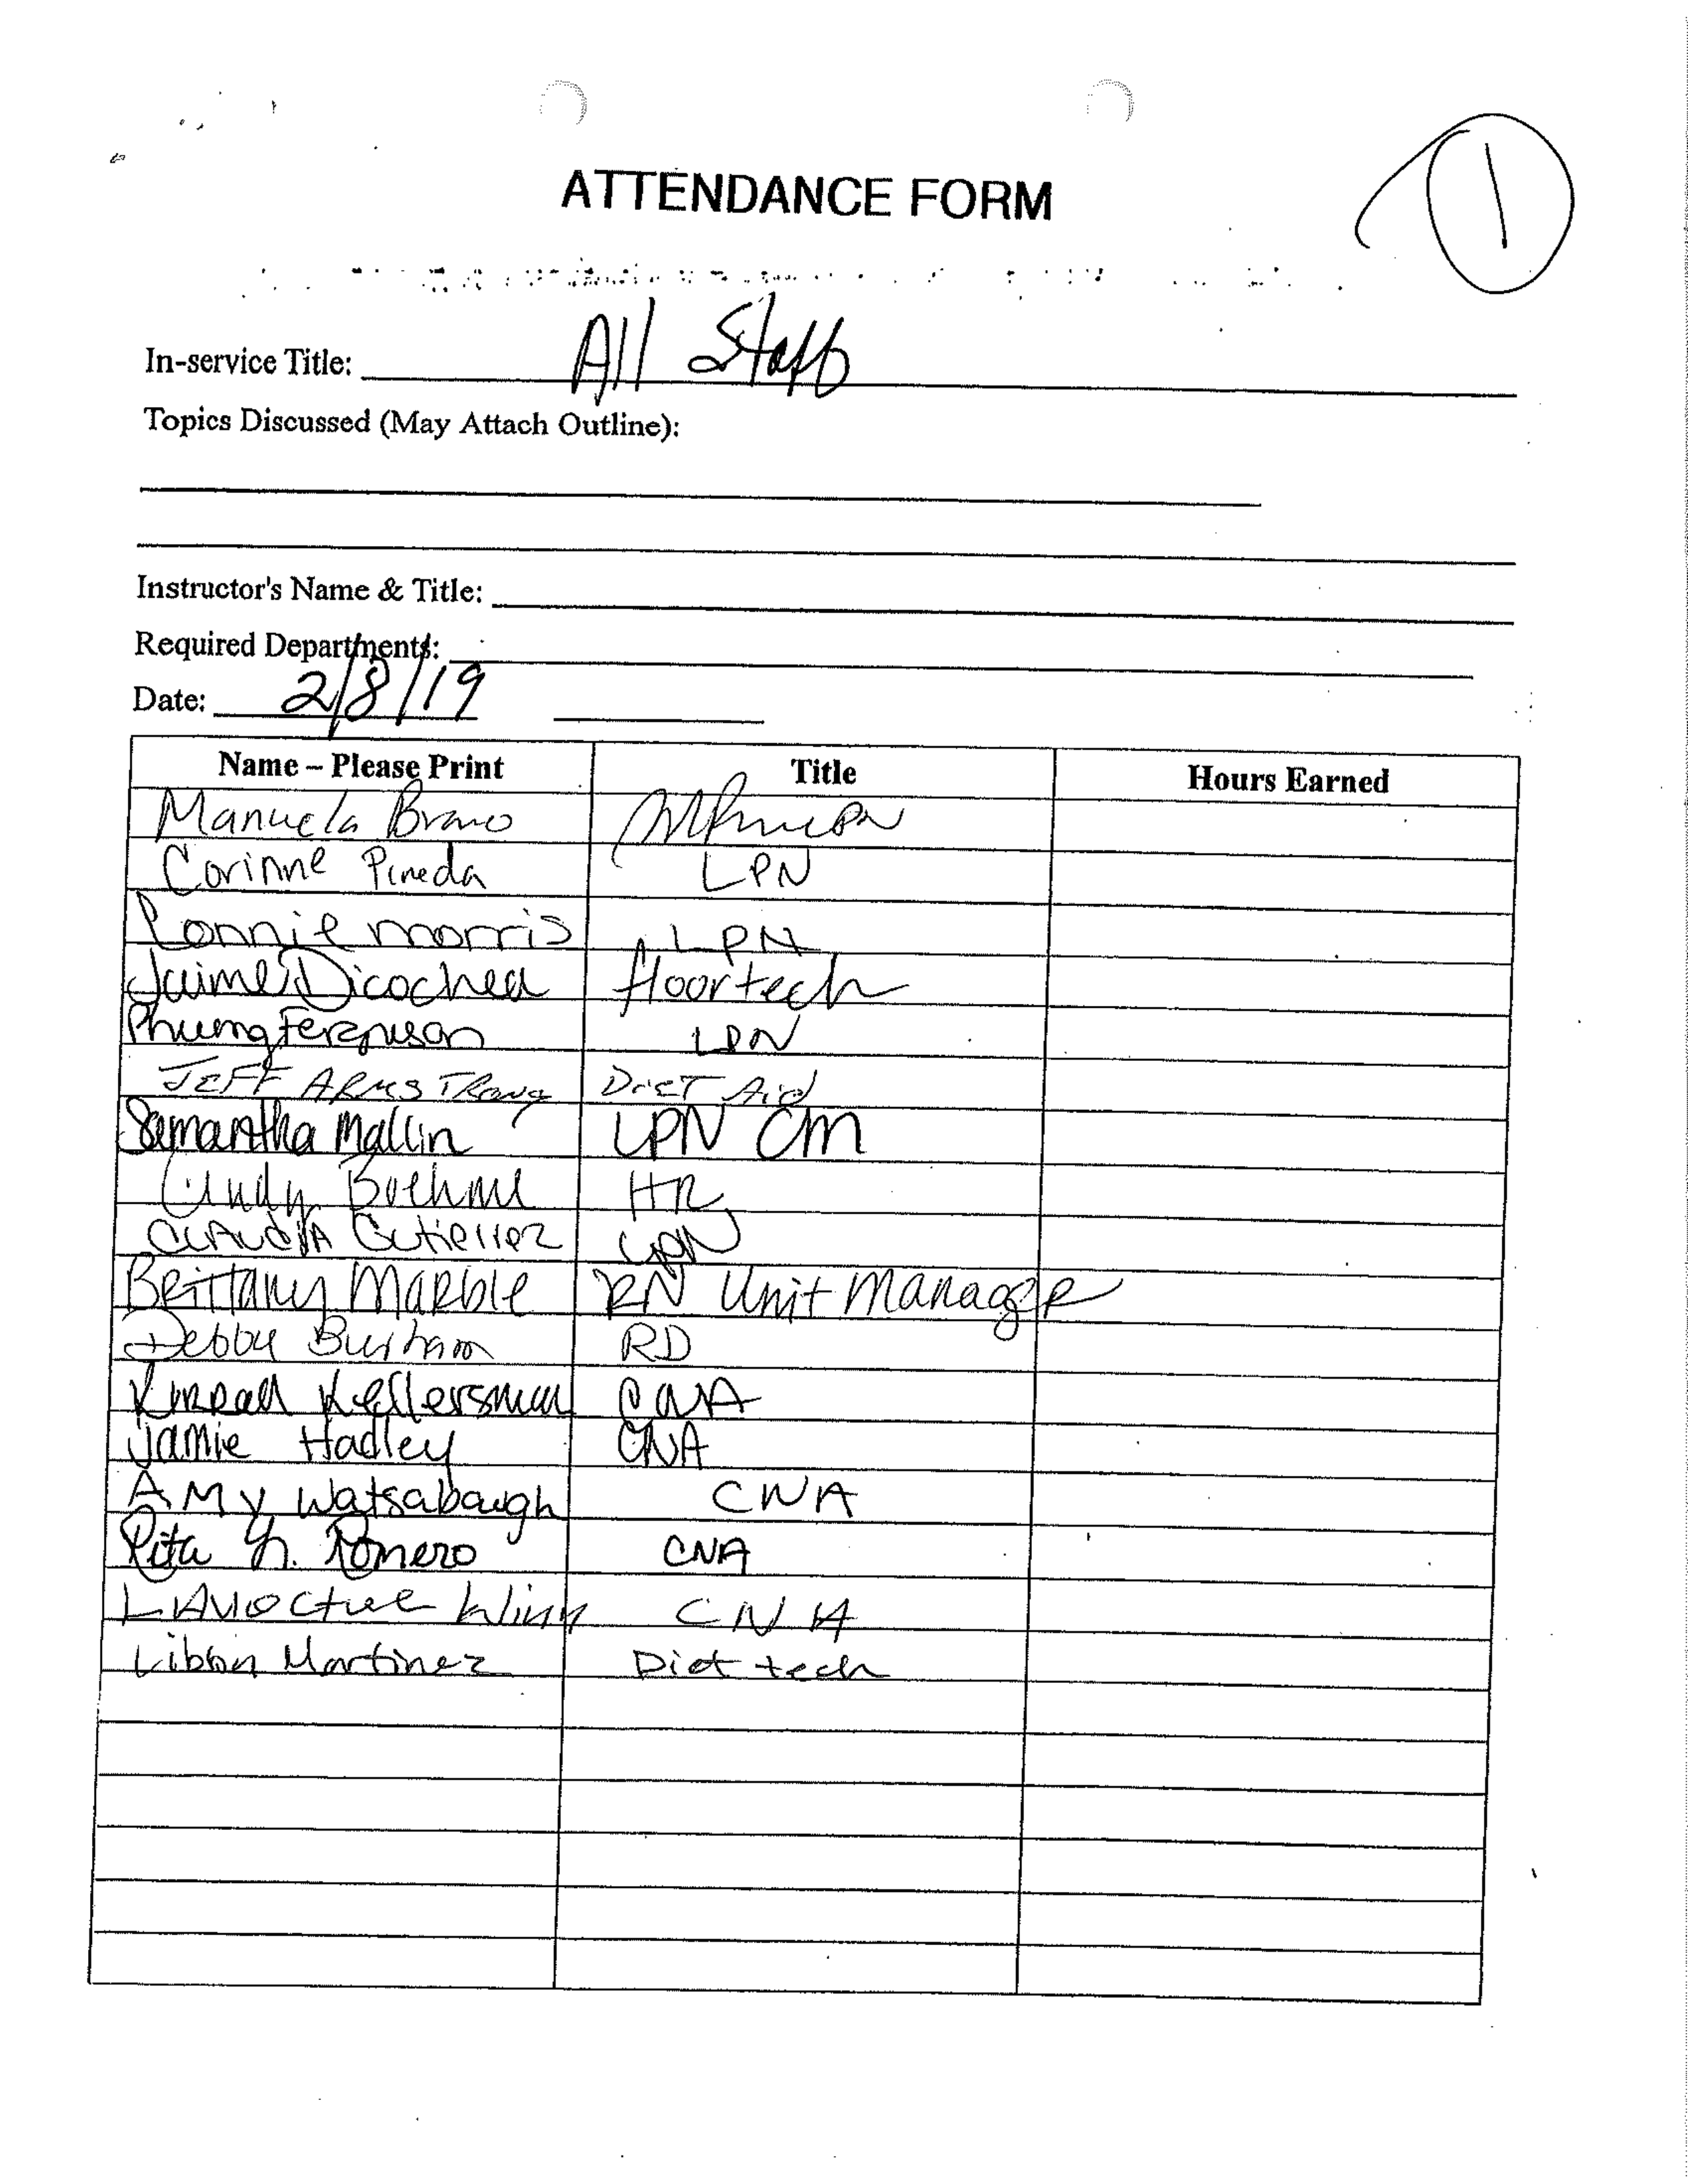 1
ATTENDANCE FORM
In-service Title: All Staff
Topics Discussed (May Attach Outline):
Instructor's Name & Title:
Required Departments:
Date: 2/8/19
Name – Please Print Title Hours Earned
Manuela Bravo
Corinne Pineda LPN
Connie morris LPN
Jaime Dicochea floortech
Phung Ferguson LPN
JEFF ARMSTRONG DIET Aid
Samantha Mallin LPN CM
Cindy Boehme HR
CLAUDIA Gutierrez LPN
Brittany Marble RN Unit Manager
Debby Burham RD
Kellersman CNA
Jamie Hadley CNA
AMY Watsabaugh CNA
Rita Y. Romero CNA
CNA
Martinez Diet tech